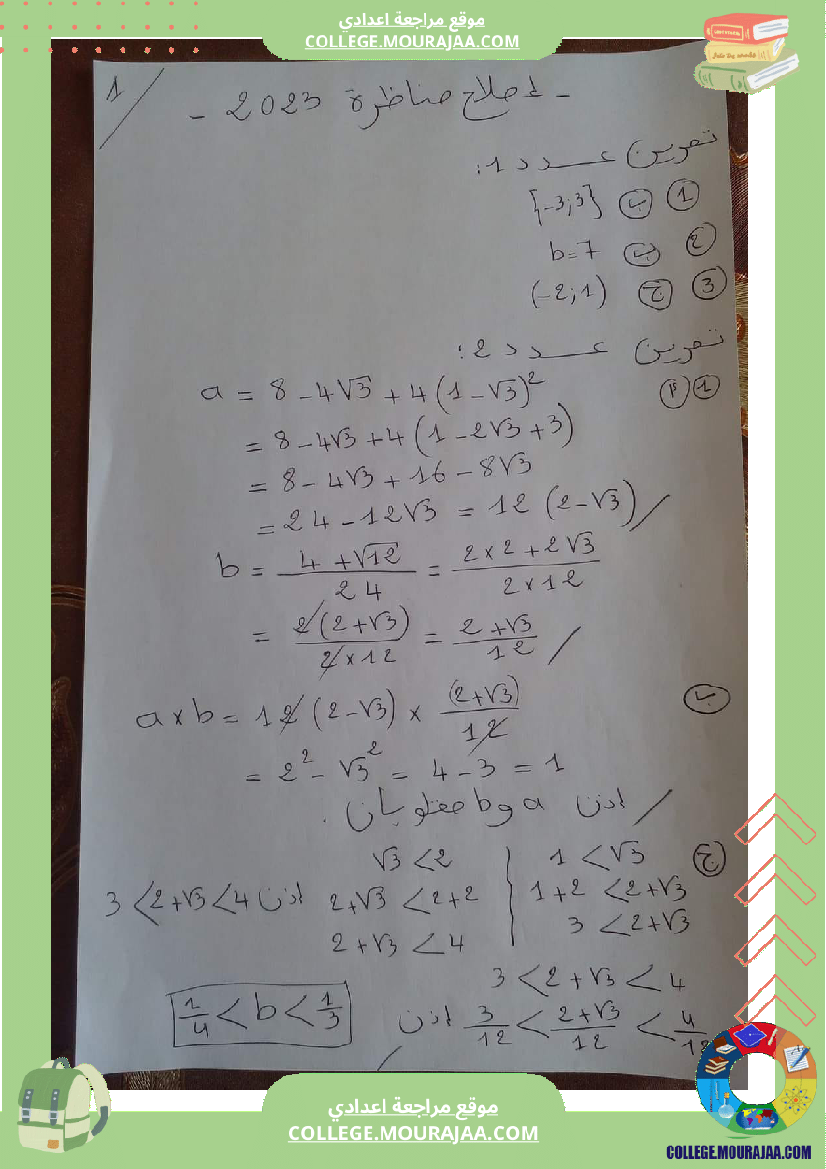 موقع مراجعة اعدادي
COLLEGE.MOURAJAA.COM
1
- إصلاح مناظرة 2023 -
تمرين عدد 1:
1 ب {-3;3}
2 ب b=7
3 ج (-2;1)
تمرين عدد 2:
1 أ a = 8 - 4√3 + 4(1-√3)²
= 8 - 4√3 + 4(1 - 2√3 + 3)
= 8 - 4√3 + 16 - 8√3
= 24 - 12√3 = 12(2-√3)
b = (4+√12)/24 = (2×2+2√3)/(2×12)
= 2(2+√3)/(2×12) = (2+√3)/12
ب a×b = 12(2-√3) × (2+√3)/12
= 2² - √3² = 4 - 3 = 1
اذن a و b مقلوبان.
ج 1 < √3
1+2 < 2+√3
3 < 2+√3
√3 < 2
2+√3 < 2+2
2+√3 < 4
اذن 3 < 2+√3 < 4
3 < 2+√3 < 4
3/12 < (2+√3)/12 < 4/12
اذن 1/4 < b < 1/3
موقع مراجعة اعدادي
COLLEGE.MOURAJAA.COM
COLLEGE.MOURAJAA.COM